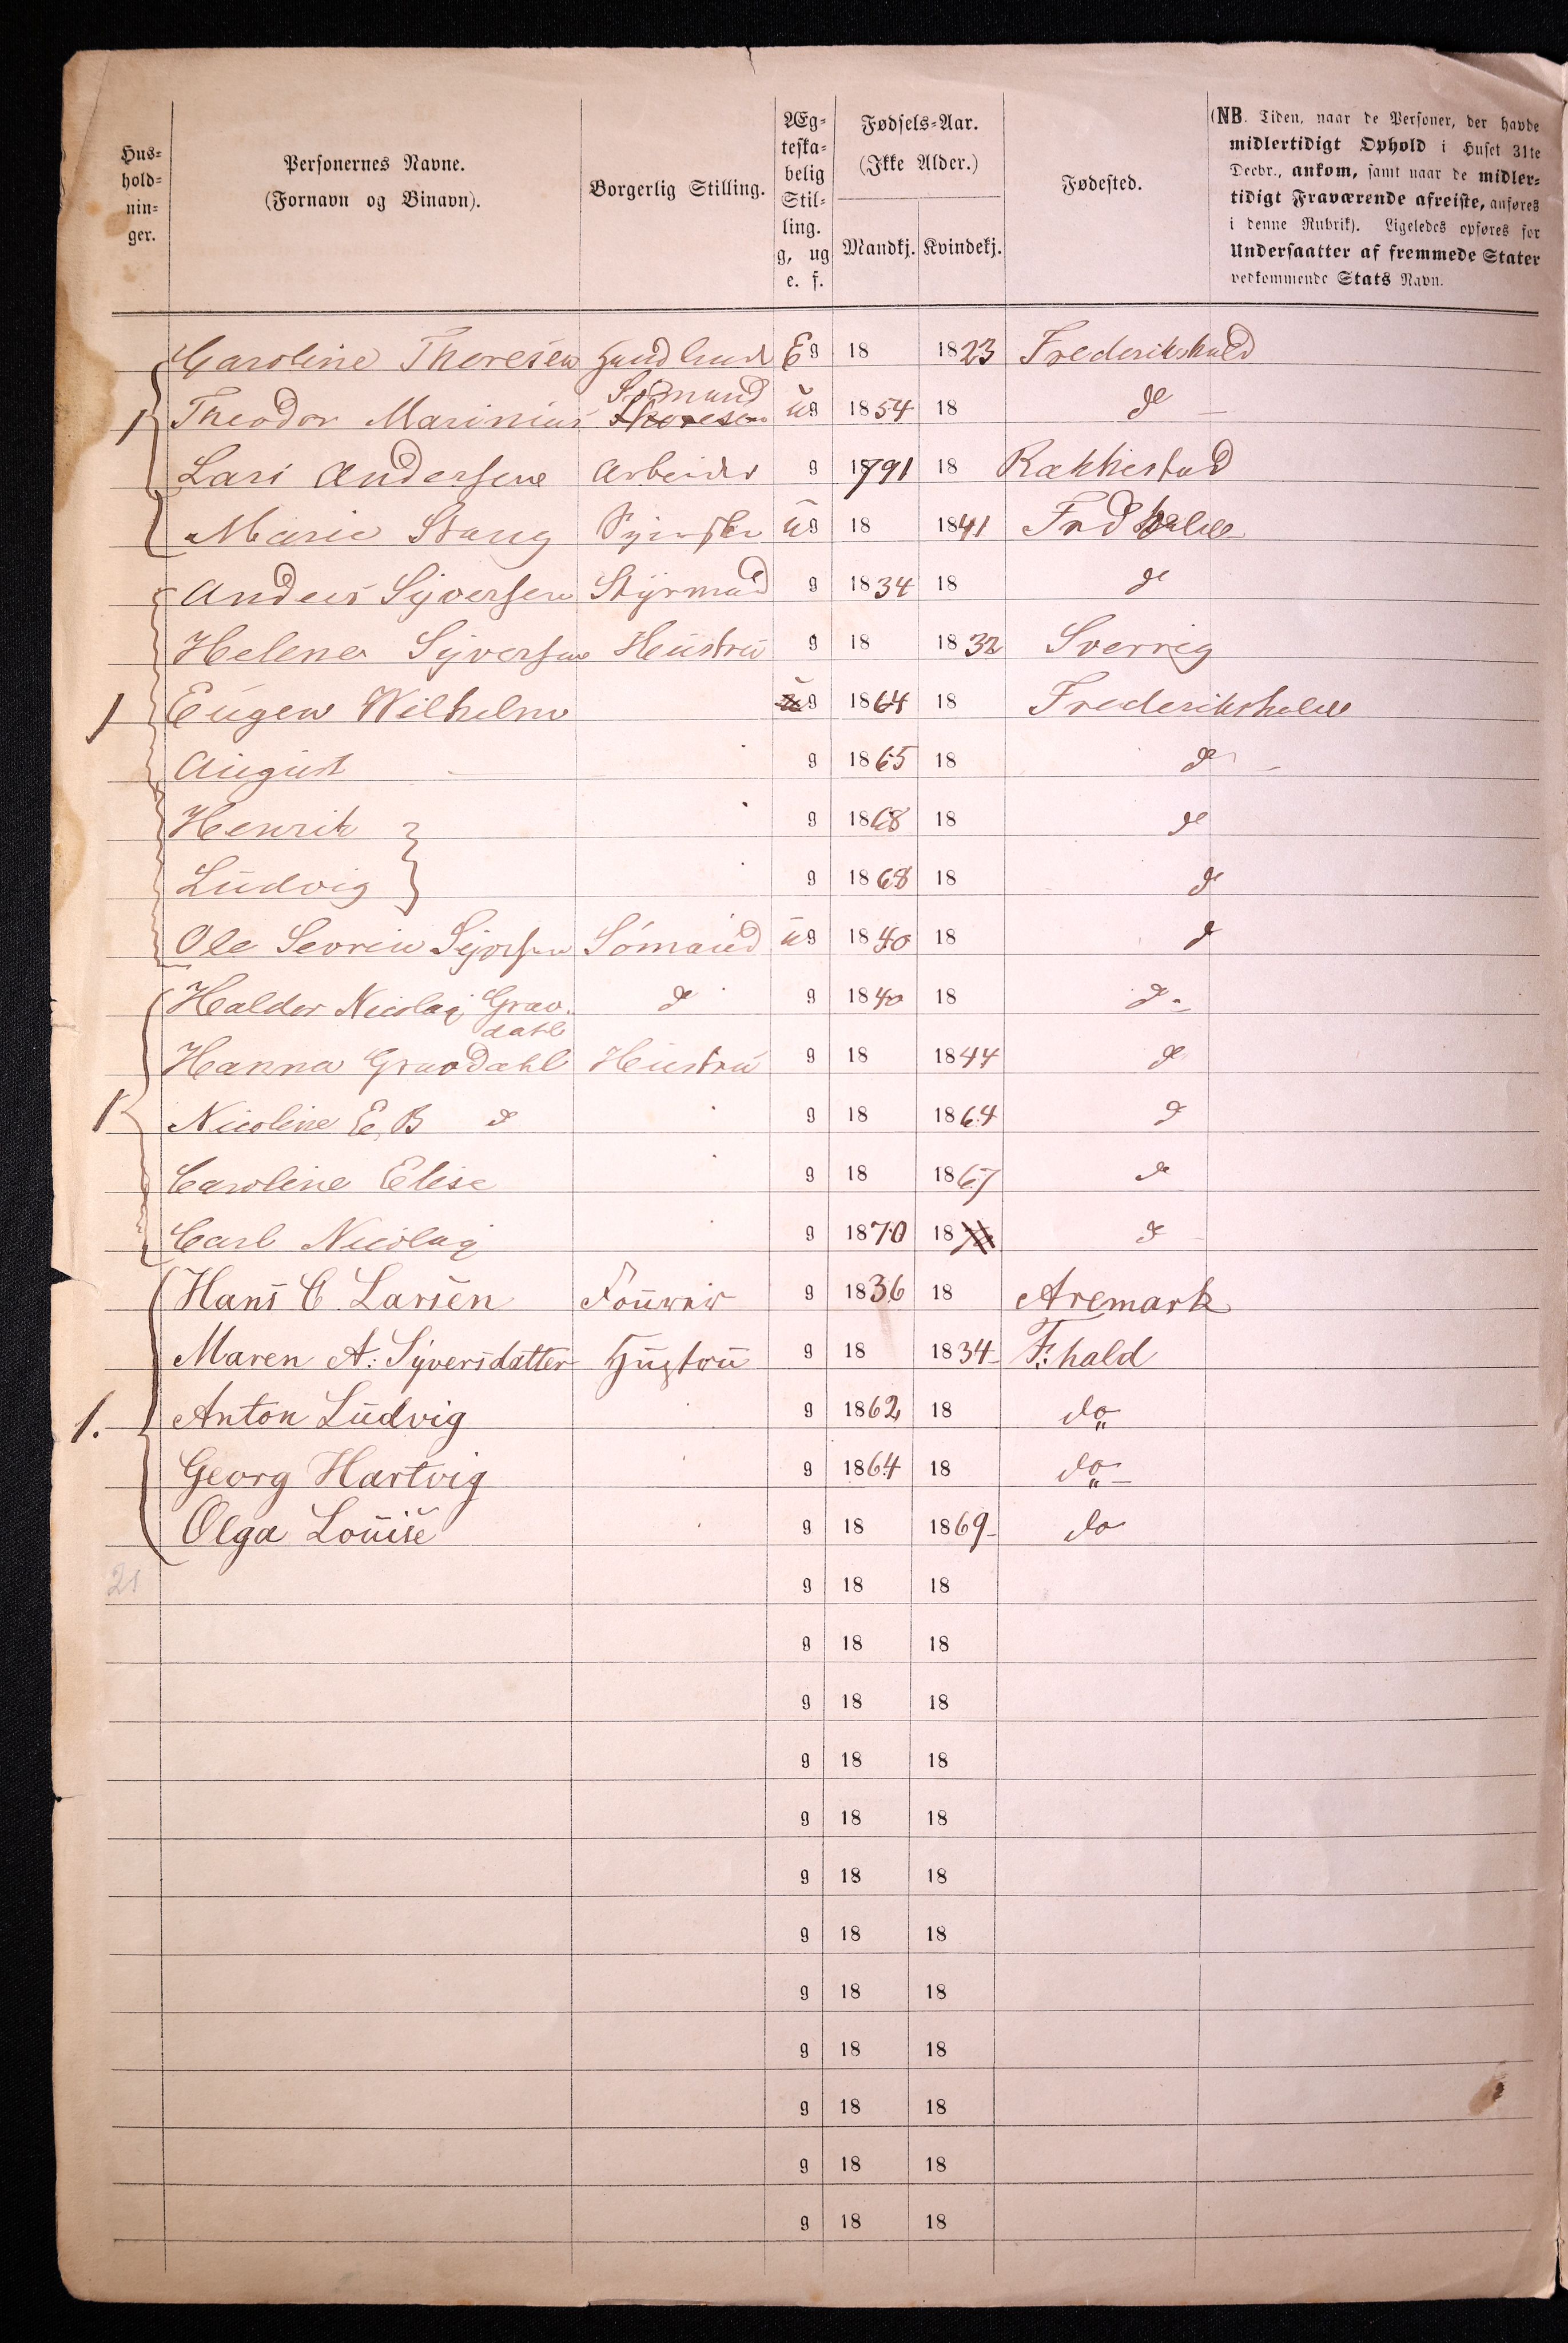 Hus-
hold-
nin-
ger.
Personernes Navne.
(Fornavn og Binavn).
Borgerlig Stilling.
Æg-
teska-
belig
Stil-
ling.
g, ug
e. f.
Fødsels-Aar.
(Ikke Alder.)
Mandkj. Kvindekj.
Fødested.
(NB. Tiden, naar de Personer, der havde
midlertidigt Ophold i Huset 31te
Decbr., ankom, samt naar de midler-
tidigt Fraværende afreiste, anføres
i denne Rubrik). Ligeledes opføres for
Undersaatter af fremmede Stater
vedkommende Stats Navn.
Caroline Thoresen E g 18 1823 Frederikshald
Sømand
1 Theodor Marinius Thoresen u g 1854 18 do
Lars Andersen Arbeider g 1791 18 Rakkestad
Marie Stang u g 18 1841 Frdhald
Anders Syversen Styrmand g 1834 18 do
Helene Syversen Hustru g 18 1832 Sverrig
1 Eugen Wilhelm g 1864 18 Frederikshald
August g 1865 18 do
Henrik g 1868 18 do
Ludvig g 1868 18 do
Ole Sevrin Syversen Sømand u g 1840 18 do
Haldor Nicolai Grav- do g 1840 18 do
dahl
Hanna Gravdahl Hustru g 18 1844 do
1 Nicoline E. B do g 18 1864 do
Caroline Elise g 18 1867 do
Carl Nicolai g 1870 18 do
Hans C. Larsen g 1836 18 Aremark
Maren A: Syversdatter Hustru g 18 1834 F: hald
1. Anton Ludvig g 1862 18 do
Georg Hartvig g 1864 18 do
Olga Louise g 18 1869 do
21 g 18 18
g 18 18
g 18 18
g 18 18
g 18 18
g 18 18
g 18 18
g 18 18
g 18 18
g 18 18
g 18 18
g 18 18